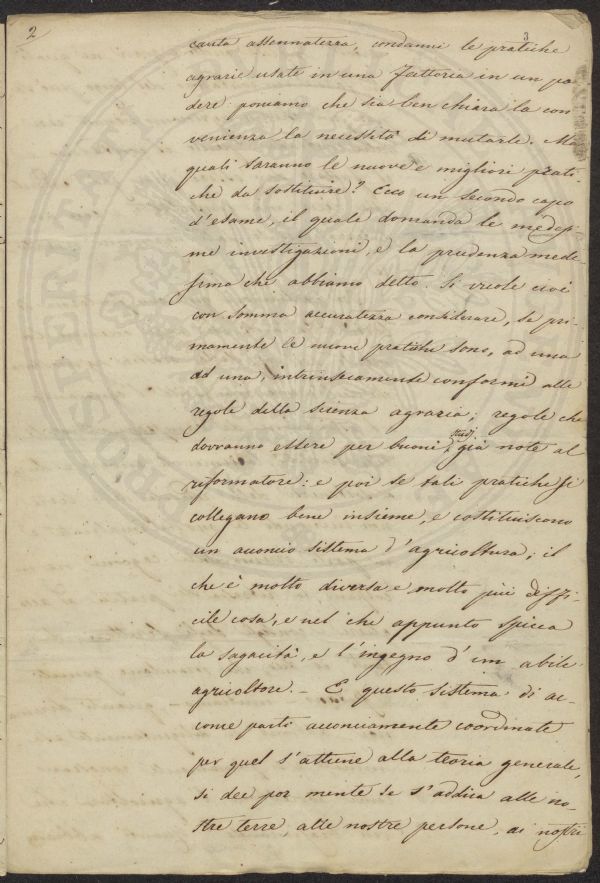 2
3
cauta assennatezza, condanni le pratiche
agrarie usate in una fattoria in un po
dere: poniamo che sia ben chiara la con
venienza la necessità di mutarle. Ma
quali saranno le nuove e migliori prati-
che da sostituire? Ecco un secondo capo
d'esame, il quale domanda le medesi-
me investigazioni, e la prudenza mede-
sima che abbiamo detto. Si vuole cioè
con somma accuratezza considerare, se pri-
mamente le nuove pratiche sono, ad una
ad una, intrinsecamente conformi alle
regole della scienza agraria; regole che
dovranno essere per buoni studj già note al
riformatore: e poi se tali pratiche si
collegano bene insieme, e costituiscono
un acconcio sistema d'agricoltura; il
che è molto diversa e molto più diffi-
cile cosa, e nel che appunto spicca
la sagacità, e l'ingegno d'un abile
agricoltore. – E questo sistema di ac-
conce parti acconciamente coordinate
per quel s'attiene alla teoria generale,
si dee por mente se s'addica alle no-
stre terre, alle nostre persone, ai nostri
PROSPERITATI